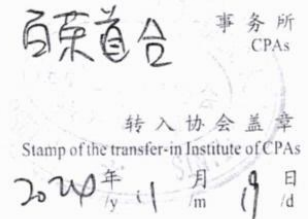 百荣道合 事务所
CPAs
转入协会盖章
Stamp of the transfer-in Institute of CPAs
2020年 11月 19日
/y /m /d